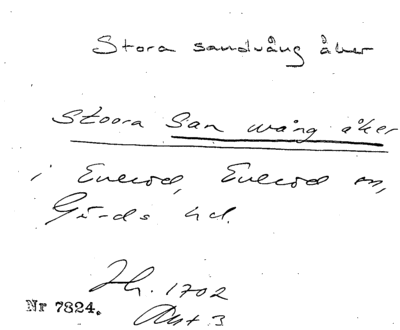 Stora sandvång åker
Stoora San wång åker
i Everöd, Everöd sn,
Gärds hd.
Jb. 1702
Akt 3
Nr 7824.